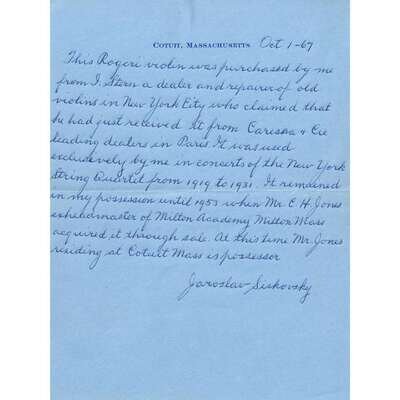 COTUIT, MASSACHUSETTS Oct 1-67
This Rogeri violin was purchased by me
from I. Stern a dealer and repairer of old
violins in New York City who claimed that
he had just received it from Caressa & Cie
leading dealers in Paris It was used
exclusively by me in concerts of the New York
String Quartet from 1919 to 1931. It remained
in my possession until 1953 when Mr. E. H. Jones
exheadmaster of Milton Academy Milton Mass
acquired it through sale. At this time Mr. Jones
residing at Cotuit Mass is possessor
Jaroslav Siskovsky